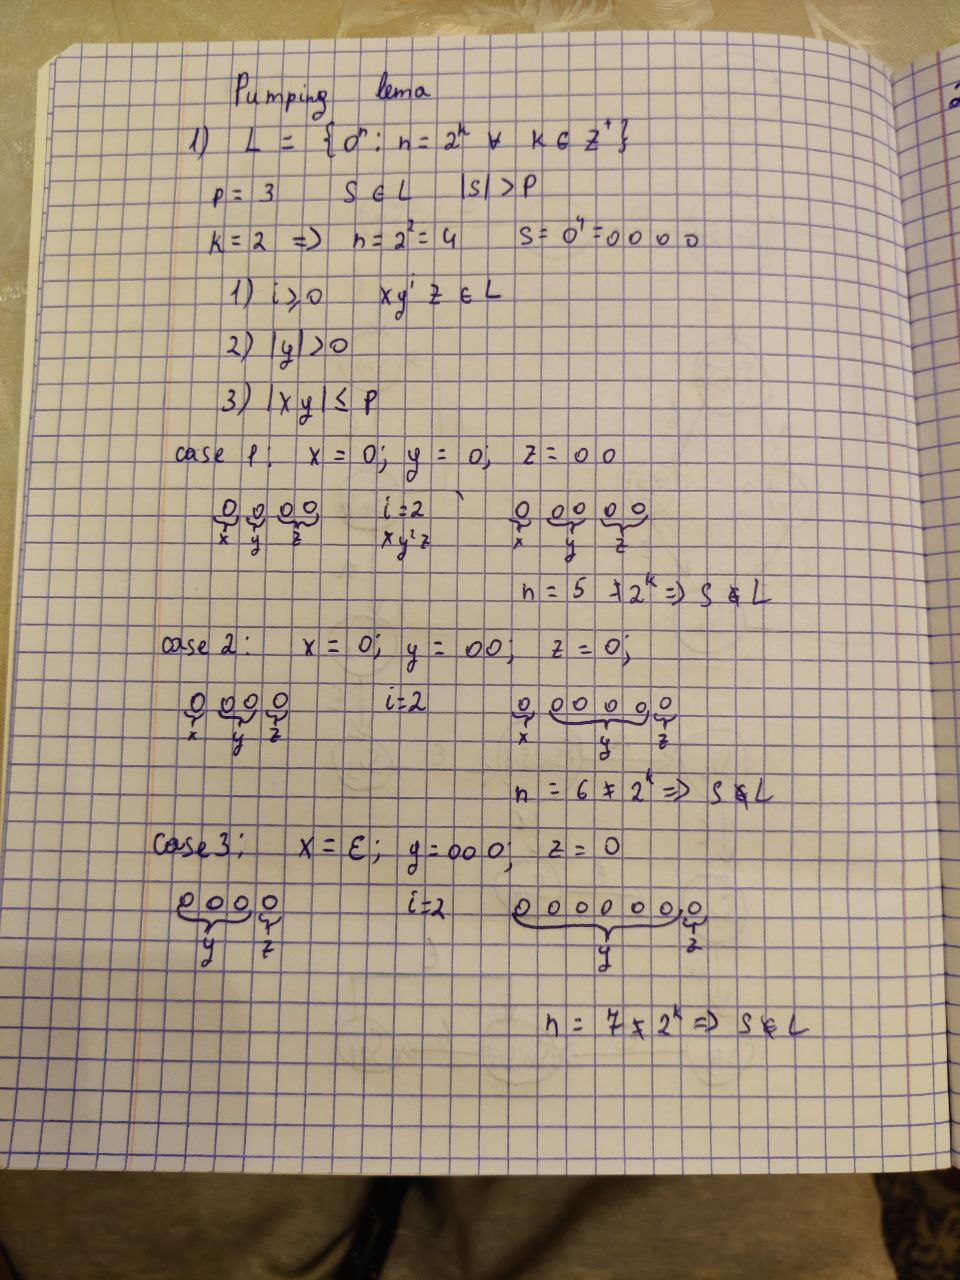 Pumping lema
1) L = {0ⁿ : n = 2ᵏ ∀ k ∈ Z⁺}
p = 3 S ∈ L |S| > P
k = 2 => n = 2² = 4 S = 0⁴ = 0 0 0 0
1) i ≥ 0 xyⁱ z ∈ L
2) |y| > 0
3) |xy| ≤ P
case 1: x = 0; y = 0; z = 00
0 0 0 0 i = 2 0 00 00
x y z xy²z x y z
n = 5 ≠ 2ᵏ => S ∉ L
case 2: x = 0; y = 00; z = 0;
0 0 0 0 i=2 0 0 0 0 0 0
x y z x y z
n = 6 ≠ 2ᵏ => S ∉ L
case 3; x = ε; y = 000; z = 0
0 0 0 0 i=2 0 0 0 0 0 0 0
y z y z
n = 7 ≠ 2ᵏ => S ∉ L